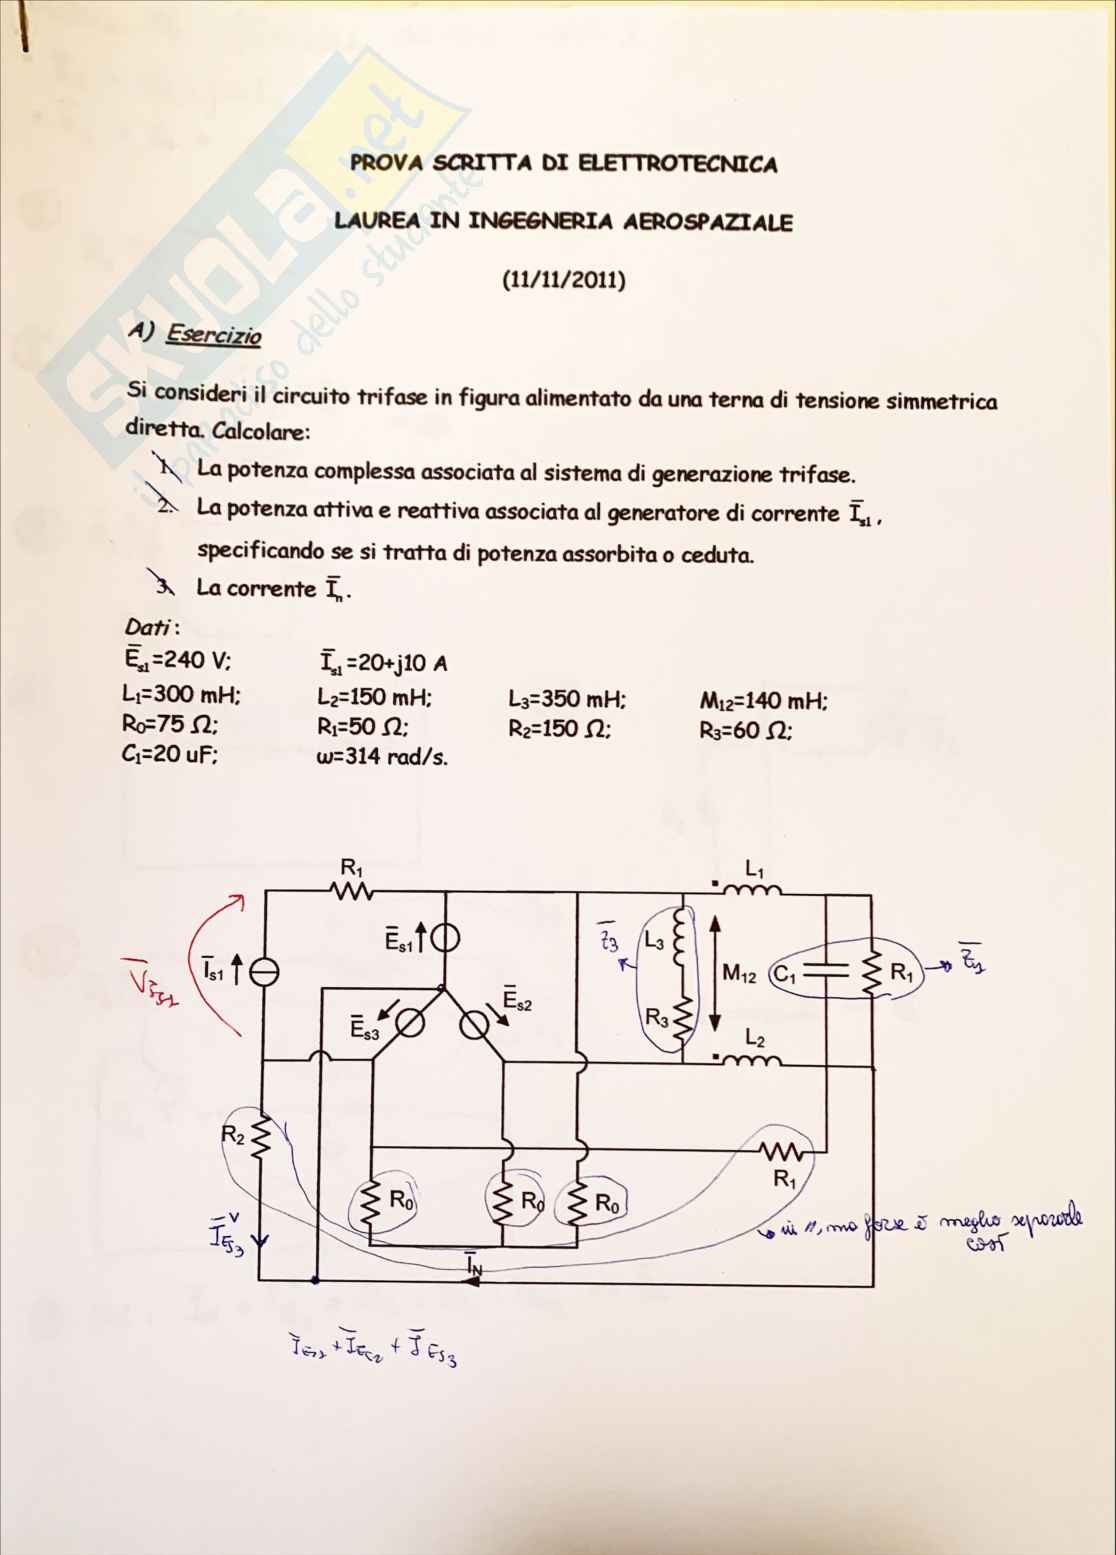 SKUOLA.net
il paradiso dello studente
PROVA SCRITTA DI ELETTROTECNICA
LAUREA IN INGEGNERIA AEROSPAZIALE
(11/11/2011)
A) Esercizio
Si consideri il circuito trifase in figura alimentato da una terna di tensione simmetrica
diretta. Calcolare:
1. La potenza complessa associata al sistema di generazione trifase.
2. La potenza attiva e reattiva associata al generatore di corrente I̅s1,
specificando se si tratta di potenza assorbita o ceduta.
3. La corrente I̅n.
Dati:
E̅s1=240 V; I̅s1=20+j10 A
L1=300 mH; L2=150 mH; L3=350 mH; M12=140 mH;
R0=75 Ω; R1=50 Ω; R2=150 Ω; R3=60 Ω;
C1=20 uF; ω=314 rad/s.
R1
L1
E̅s1
z̅3
L3
I̅s1
M12
C1
R1
E̅s3
E̅s2
R3
L2
R2
R1
R0
R0
R0
in //, ma forse è meglio separarle
così
I̅ES3
I̅N
I̅ES1 + I̅ES2 + I̅ES3